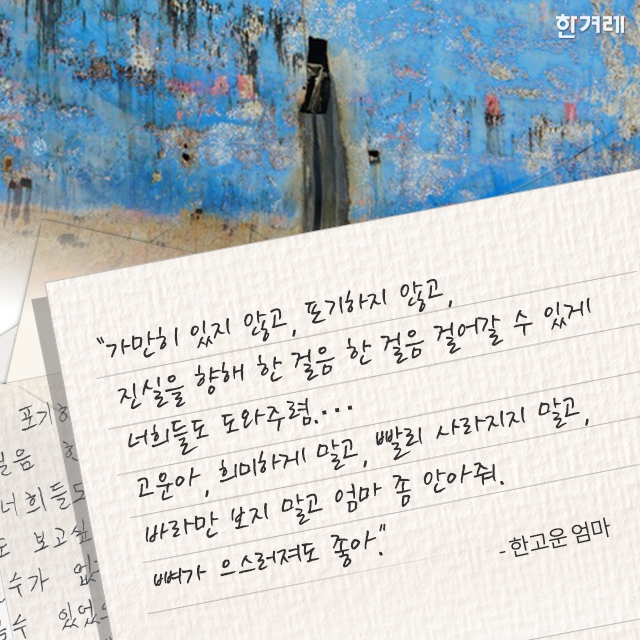 한겨레
"가만히 있지 않고, 포기하지 않고,
진실을 향해 한 걸음 한 걸음 걸어갈 수 있게
너희들도 도와주렴....
고운아, 희미하게 말고, 빨리 사라지지 말고,
바라만 보지 말고 엄마 좀 안아줘.
뼈가 으스러져도 좋아."
-한고운 엄마
포기하
걸음
너희들도
보고싶
수가
수 있었